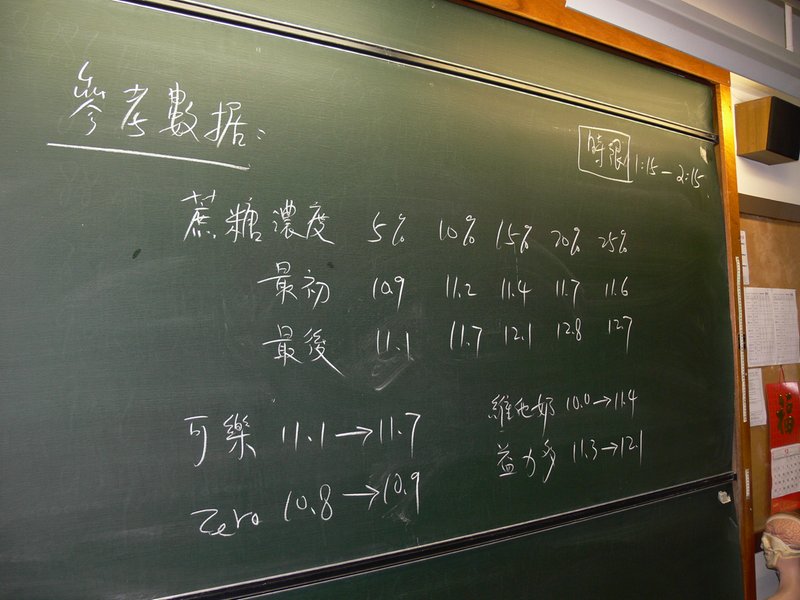 參考數据:
時限 1:15 - 2:15
蔗糖濃度 5% 10% 15% 20% 25%
最初 10.9 11.2 11.4 11.7 11.6
最後 11.1 11.7 12.1 12.8 12.7
可樂 11.1→11.7
維他奶 10.0→11.4
Zero 10.8→10.9
益力多 11.3→12.1
福